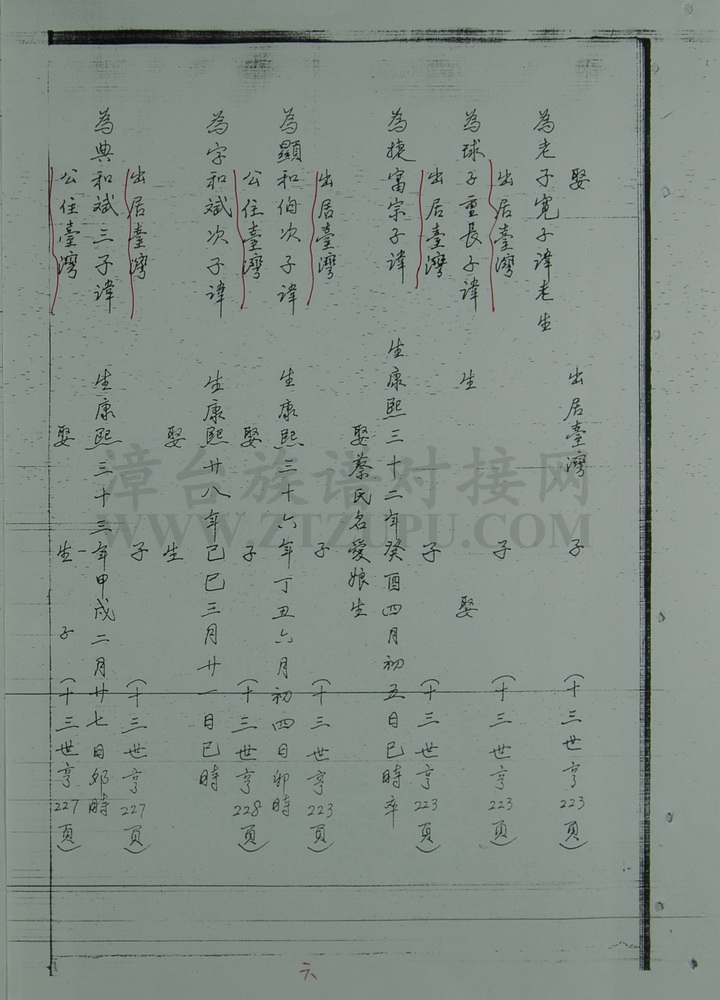 娶　出居臺灣　子　(十三世亨223頁)
為老子寬子諱老生
出居臺灣　子　(十三世亨223頁)
為球子重長子諱　生　娶
出居臺灣　子　(十三世亨223頁)
為捷富宗子諱　生康熙三十二年癸酉四月初五日巳時卒
娶蔡氏名愛娘生
出居臺灣　子　(十三世亨223頁)
為顯和伯次子諱　生康熙三十六年丁丑六月初四日卯時
公住臺灣　娶　子　(十三世亨228頁)
為字和斌次子諱　生康熙廿八年己巳三月廿一日巳時
娶　生
出居臺灣　子　(十三世亨227頁)
為典和斌三子諱　生康熙三十三年甲戌二月廿七日卯時
公住臺灣　娶　生　子　(十三世亨227頁)
六
漳台族谱对接网
WWW.ZTZUPU.COM